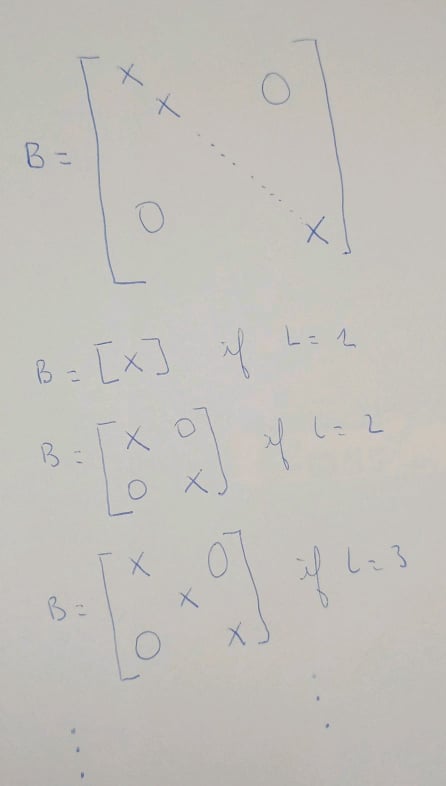 B = [ x x 0 ..... 0 x ]
B = [x] if L = 1
B = [ x 0
0 x ] if L = 2
B = [ x 0
x
0 x ] if L = 3
⋮ ⋮